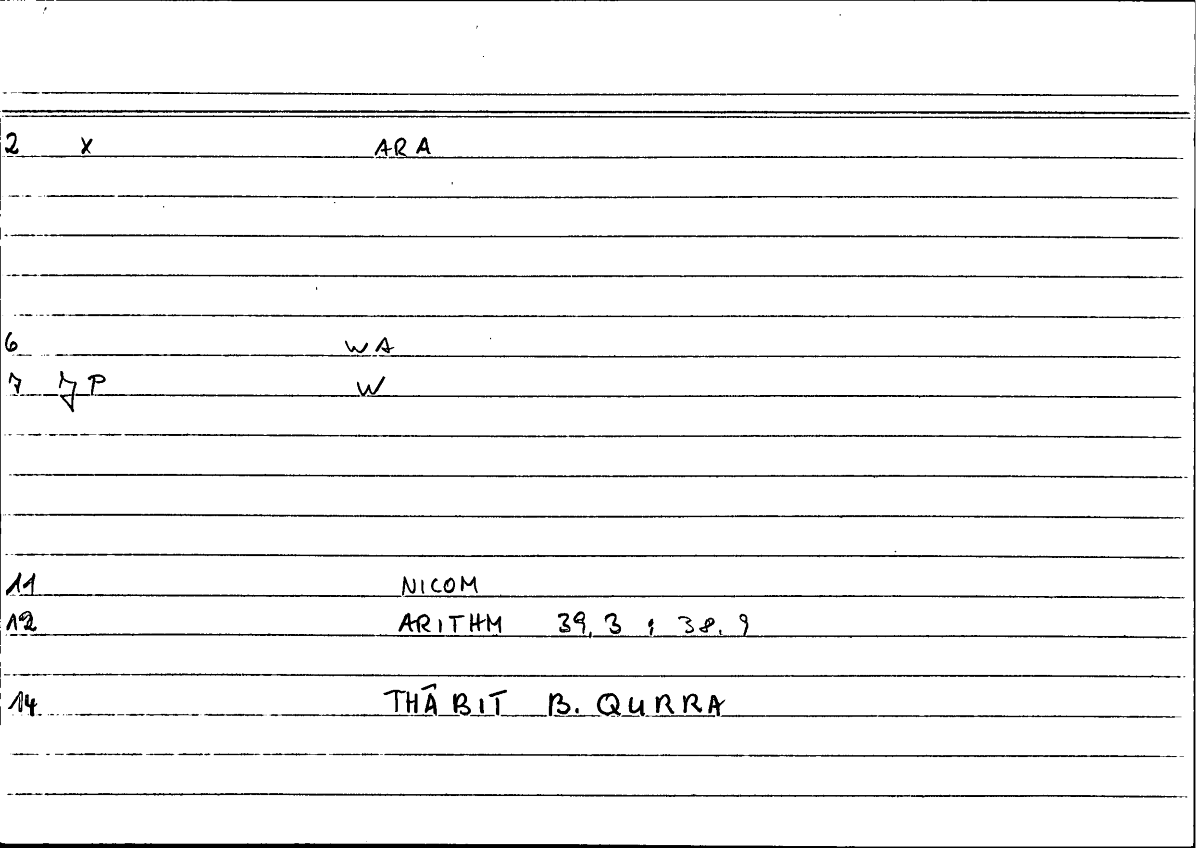 2 x ARA
6 WA
7 P W
11 NICOM
12 ARITHM 39, 3 ; 38. 9
14 THĀBIT B. QURRA